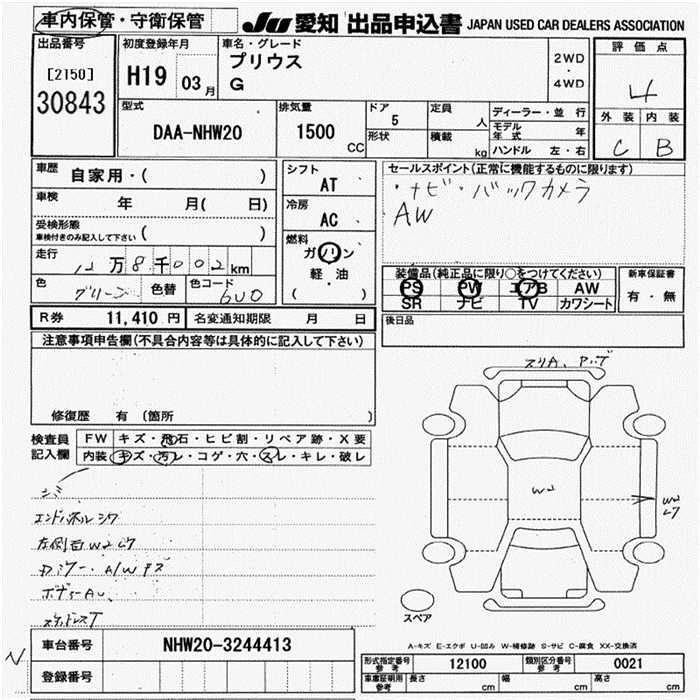 車内保管・守衛保管
JU 愛知 出品申込書 JAPAN USED CAR DEALERS ASSOCIATION
出品番号
[2150]
30843
初度登録年月
H19 03月
車名・グレード
プリウス
G
2WD
・
4WD
評価点
4
外装 内装
C B
型式
DAA-NHW20
排気量
1500
CC
ドア
5
形状
定員
人
積載
kg
ディーラー・並行
モデル年式 年
ハンドル 左・右
車歴 自家用・( )
車検 年 月( 日)
受検形態
車検付きのみ記入して下さい ( )
走行 12万8千002km
色 グリーン 色替 色コード 6U0
シフト
AT
冷房
AC
燃料
ガソリン
軽・油
( )
セールスポイント(正常に機能するものに限ります)
・ナビ・バックカメラ
AW
装備品(純正品に限り○をつけてください)
PS PW エアB AW
SR ナビ TV カワシート
新車保証書
有・無
R券 11,410円 名変通知期限 月 日
後日品
注意事項申告欄(不具合内容等は具体的に記入して下さい)
修復歴 有 (箇所 )
検査員記入欄
FW キズ・飛石・ヒビ割・リペア跡・X要
内装 キズ・汚レ・コゲ・穴・スレ・キレ・破レ
シミ
左側面W2
ボデーAU
スリA、
W2
W2
スペア
A-キズ E-エクボ U-凹み W-補修跡 S-サビ C-腐食 XX-交換済
車台番号 NHW20-3244413
登録番号
型式指定番号
参考
12100
類別区分番号
参考
0021
車庫証明用
参考
長さ cm 幅 cm 高さ cm
N